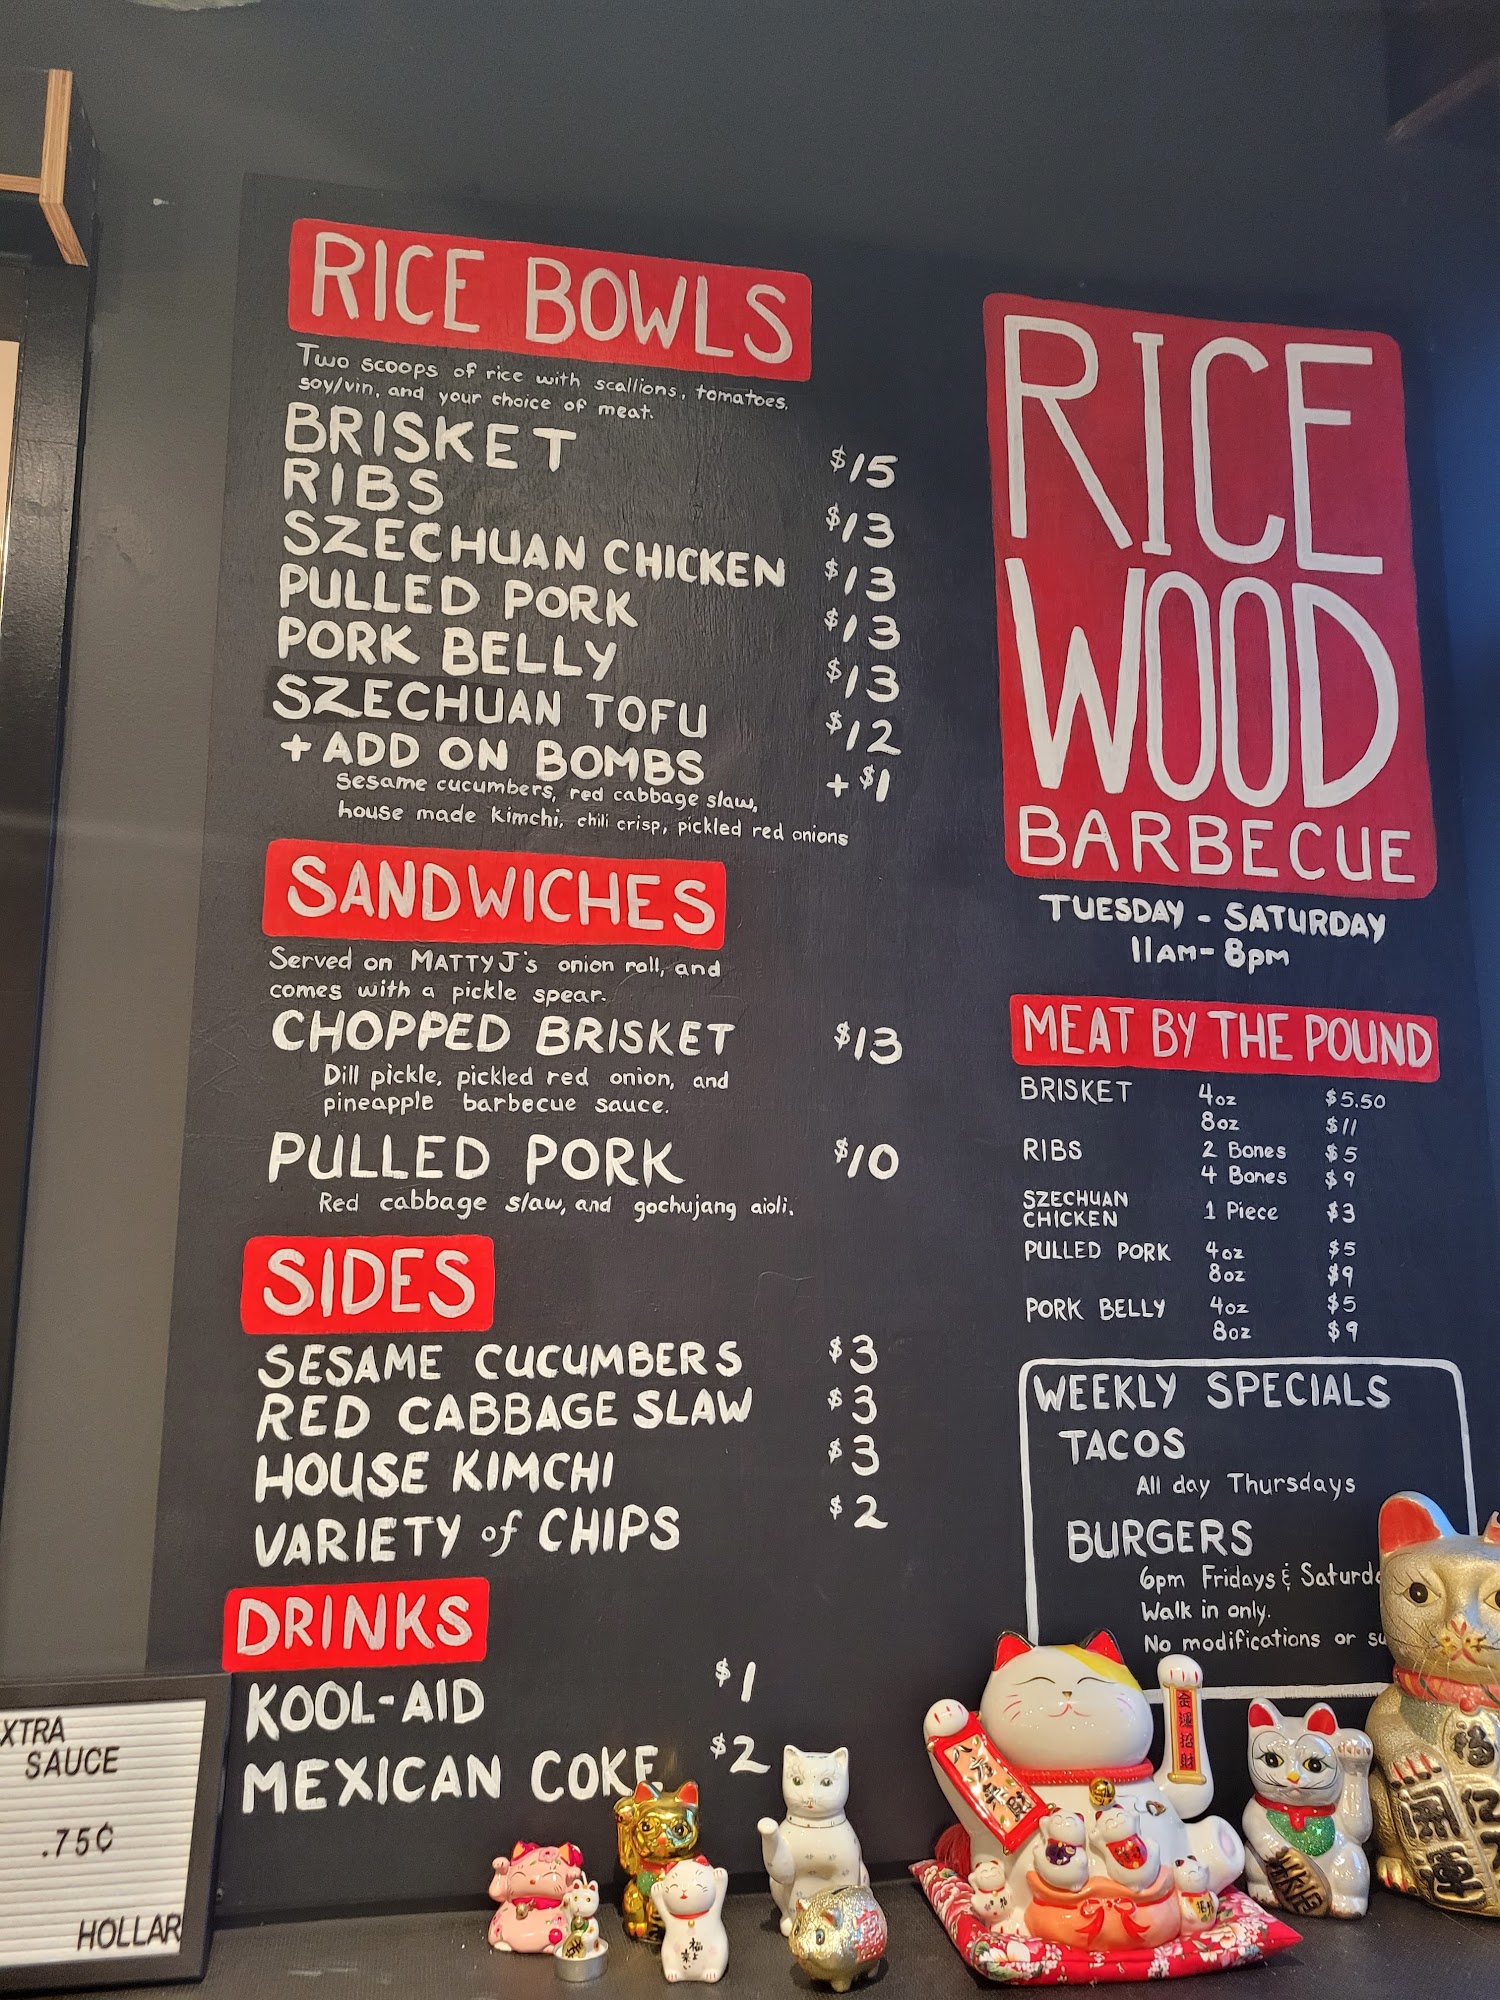 RICE BOWLS
Two scoops of rice with scallions, tomatoes,
soy/vin, and your choice of meat.
BRISKET $15
RIBS $13
SZECHUAN CHICKEN $13
PULLED PORK $13
PORK BELLY $13
SZECHUAN TOFU $12
+ ADD ON BOMBS + $1
Sesame cucumbers, red cabbage slaw,
house made kimchi, chili crisp, pickled red onions
SANDWICHES
Served on MATTY J's onion roll, and
comes with a pickle spear.
CHOPPED BRISKET $13
Dill pickle, pickled red onion, and
pineapple barbecue sauce.
PULLED PORK $10
Red cabbage slaw, and gochujang aioli.
SIDES
SESAME CUCUMBERS $3
RED CABBAGE SLAW $3
HOUSE KIMCHI $3
VARIETY of CHIPS $2
DRINKS
KOOL-AID $1
MEXICAN COKE $2
RICE
WOOD
BARBECUE
TUESDAY - SATURDAY
11AM - 8pm
MEAT BY THE POUND
BRISKET 4oz $5.50
8oz $11
RIBS 2 Bones $5
4 Bones $9
SZECHUAN
CHICKEN 1 Piece $3
PULLED PORK 4oz $5
8oz $9
PORK BELLY 4oz $5
8oz $9
WEEKLY SPECIALS
TACOS
All day Thursdays
BURGERS
6pm Fridays & Saturda
Walk in only.
No modifications or su
XTRA
SAUCE
.75¢
HOLLAR
金運招財
開運